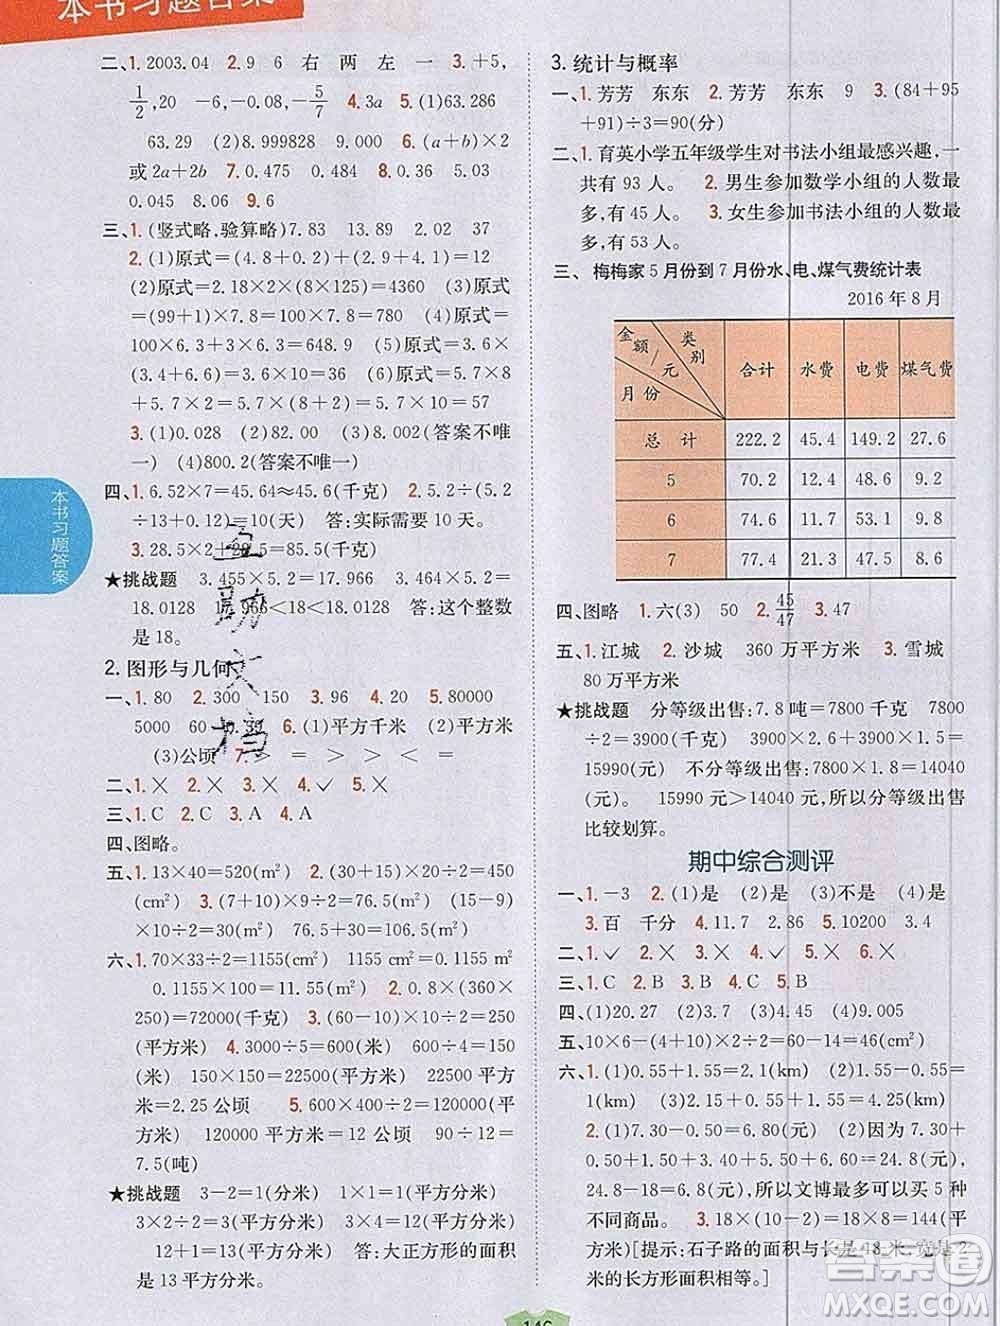 本书习题答案
二、1.2003.04 2.9 6 右 两 左 一 3.+5,
1/2,20 -6,-0.08,-5/7 4.3a 5.(1)63.286
63.29 (2)8.999828 9.000 6.(a+b)×2
或2a+2b 7.0.47 0.083 8.0.36 5.03
0.045 8.06 9.6
三、1.(竖式略,验算略)7.83 13.89 2.02 37
2.(1)原式=(4.8+0.2)+(4.9+2.1)=12
(2)原式=2.18×2×(5×200)=4360 (3)原式=
(99+1)×7.8=100×7.8=780 (4)原式=(100
+3)×6.3=100×6.3+3×6.3=648.9 (5)原式=
(3.4+6.6)×3.6=10×3.6=36 (6)原式=5.7×8
+5.7×2=5.7×(8+2)=5.7×10=57
3.(1)0.028 (2)82.0 (3)8.002(答案不唯
一) (4)800.2(答案不唯一)
四、1.6.52×7=45.64≈45.6(千克) 2.5.2÷(5.2
÷13+0.12)=10(天) 答:实际需要 10 天。
3.28.5×2+28.5=85.5(千克)
★挑战题 3.455×5.2=17.966 3.464×5.2=
18.0128 17.966<18<18.0128 答:这个整数
是 18。
2. 图形与几何
一、1.80 2.300 150 3.96 4.20 5.80000
5000 60 0.39 6.(1)平方千米 (2)平方米
(3)公顷 7.> = > > < =
二、1.× 2.× 3.× 4.✓ 5.×
三、1.C 2.C 3.A 4.A
四、图略。
五、1.13×40=520(cm²) 2.(10+20)×30÷2=450
(cm²) 3.(7+10)×9÷2=76.5(m²) (15-9)
×10÷2=30(m²) 76.5+30=106.5(m²)
六、1.70×33÷2=1155(cm²) 1155cm²=0.1155m²
0.1155×100=11.55(m²) 2.0.8×(360×
250)=72000(千克) 3.(60-10)×30=1500
(平方米) 4.3000÷5÷4=150(米) 150×1=150
(米) 150×150=22500(平方米) 22500 平方
米=2.25 公顷 5.600×400÷2=120000(平方
米) 120000 平方米=12 公顷 90÷12=
7.5(吨)
★挑战题 3-2=1(分米) 1×1=1(平方分米)
3×2÷2=3(平方分米) 3×4=12(平方分米)
12+1=13(平方分米) 答:大正方形的面积
是 13 平方分米。
3. 统计与概率
一、1.芳芳 东东 2.芳芳 东东 9 3.(84+95
+91)÷3=90(分)
二、1.育英小学五年级学生对书法小组最感兴趣,一
共有 93 人。 2.男生参加数学小组的人数最
多,有 45 人。 3.女生参加书法小组的人数最
多,有 53 人。
三、 梅梅家 5 月份到 7 月份水、电、煤气费统计表
2016 年 8 月
金额/元 类别 月份 合计 水费 电费 煤气费
总 计 222.2 45.4 149.2 27.6
5 70.2 12.4 48.6 9.2
6 74.6 11.7 53.1 9.8
7 77.4 21.3 47.5 8.6
四、图略 1.六(3) 50 2.45/47 3.47
五、1.江城 2.沙城 360 万平方米 3.雪城
80 万平方米
★挑战题 分等级出售:7.8 吨=7800 千克 7800
÷2=3900(千克) 3900×2.6+3900×1.5=
15990(元) 不分等级出售:7800×1.8=14040
(元)。 15990 元>14040 元,所以分等级出售
比较划算。
期中综合测评
一、1.-3 2.(1)是 (2)是 (3)不是 (4)是
3.百 千分 4.11.7 2.86 5.10200 3.4
二、1.✓ 2.× 3.× 4.× 5.✓ 6.×
三、1.C 2.B 3.A 4.C 5.B
四、(1)20.27 (2)3.4 (3)4.45 (4)9.005
五、10×6-(4+10)×2÷2=60-14=46(cm²)
六、1.(1)0.55+1.55=2.1(km) (2)1.55-0.55=
1(km) (3)2.15+0.55+1.55=4.25(km)
2.(1)7.30-5.80=1.50(元) (2)因为 7.30+
0.51+5.80+3.20+1.30=18.11(元)
24.8-18.11=6.69(元),所以文博可以买 5 种
不同商品。 3.18×(10-2)=18×8=144(平
方米)[提示:石子路的面积与长是 18 米、宽是 2
米的长方形面积相等。]
本书习题答案
互
助
文
档
146
答案圈
MXQE.COM